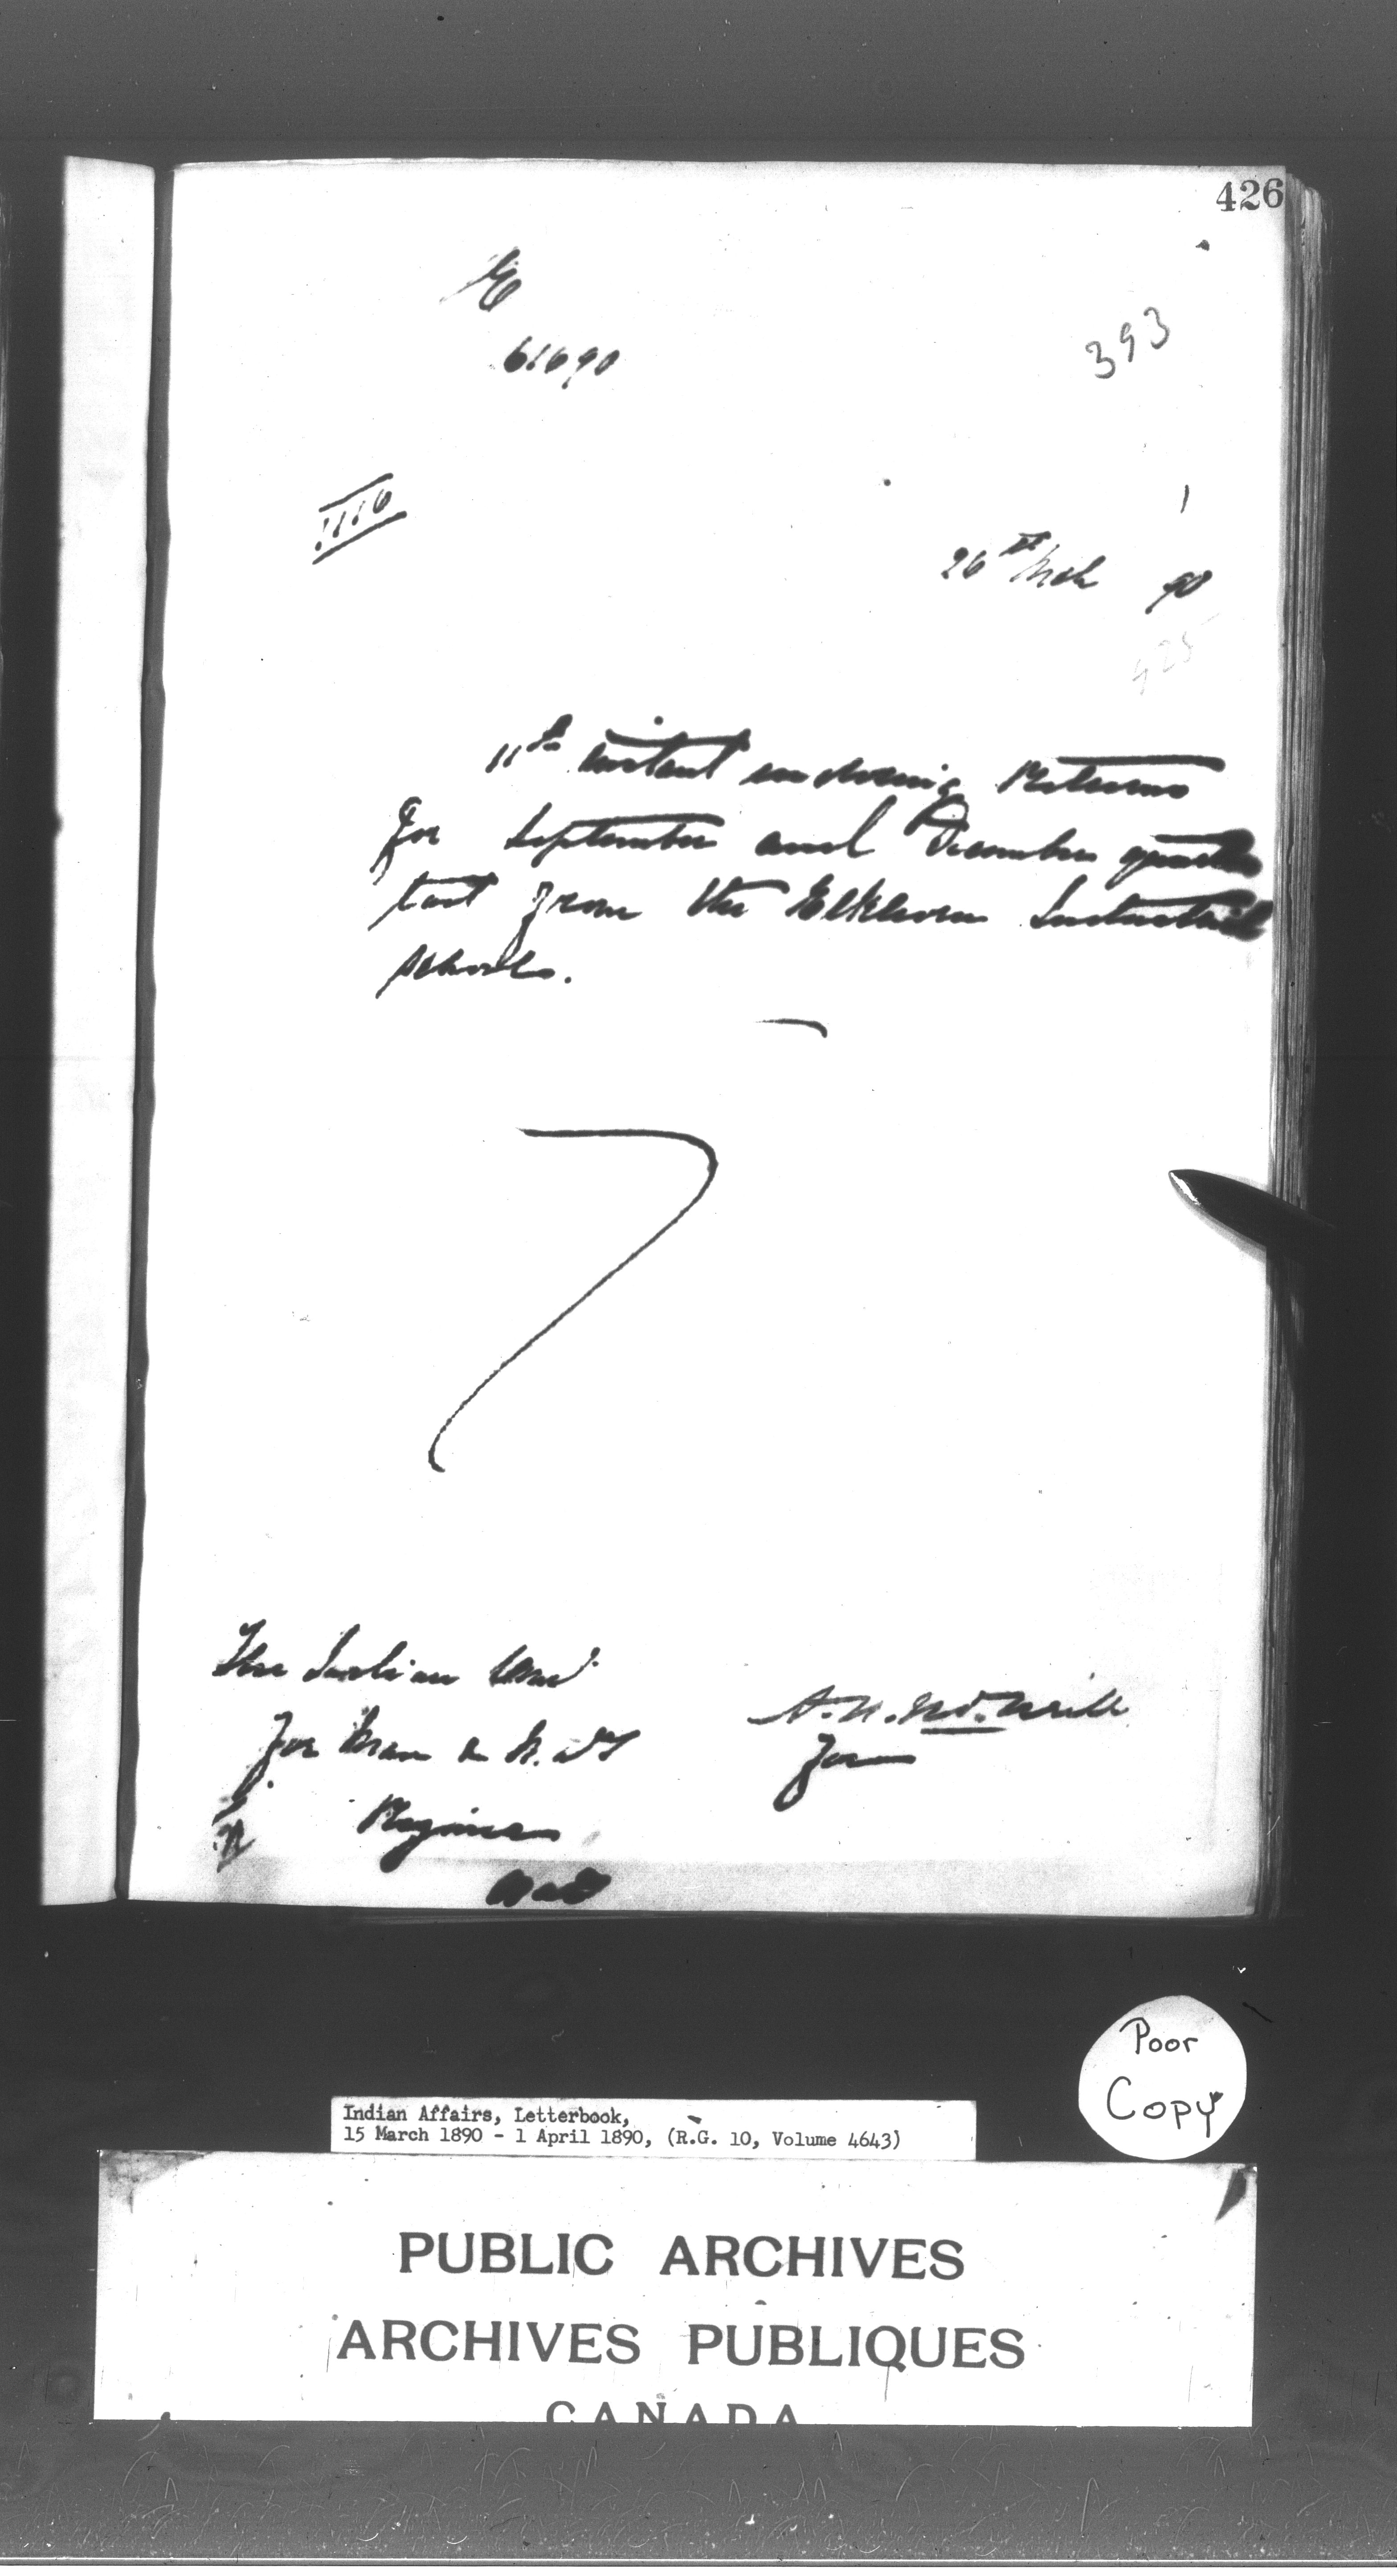 426
E
61690
393
1116
26th Mch 90
425
11th instant enclosing Returns
for September and December quarter
last from the Elkhorn Industrial
schools.
The Indian Comr
for Man & N.W.T
Regina
A.N. McNeill
for
Poor
Copy
Indian Affairs, Letterbook,
15 March 1890 - 1 April 1890, (R.G. 10, Volume 4643)
PUBLIC ARCHIVES
ARCHIVES PUBLIQUES
CANADA